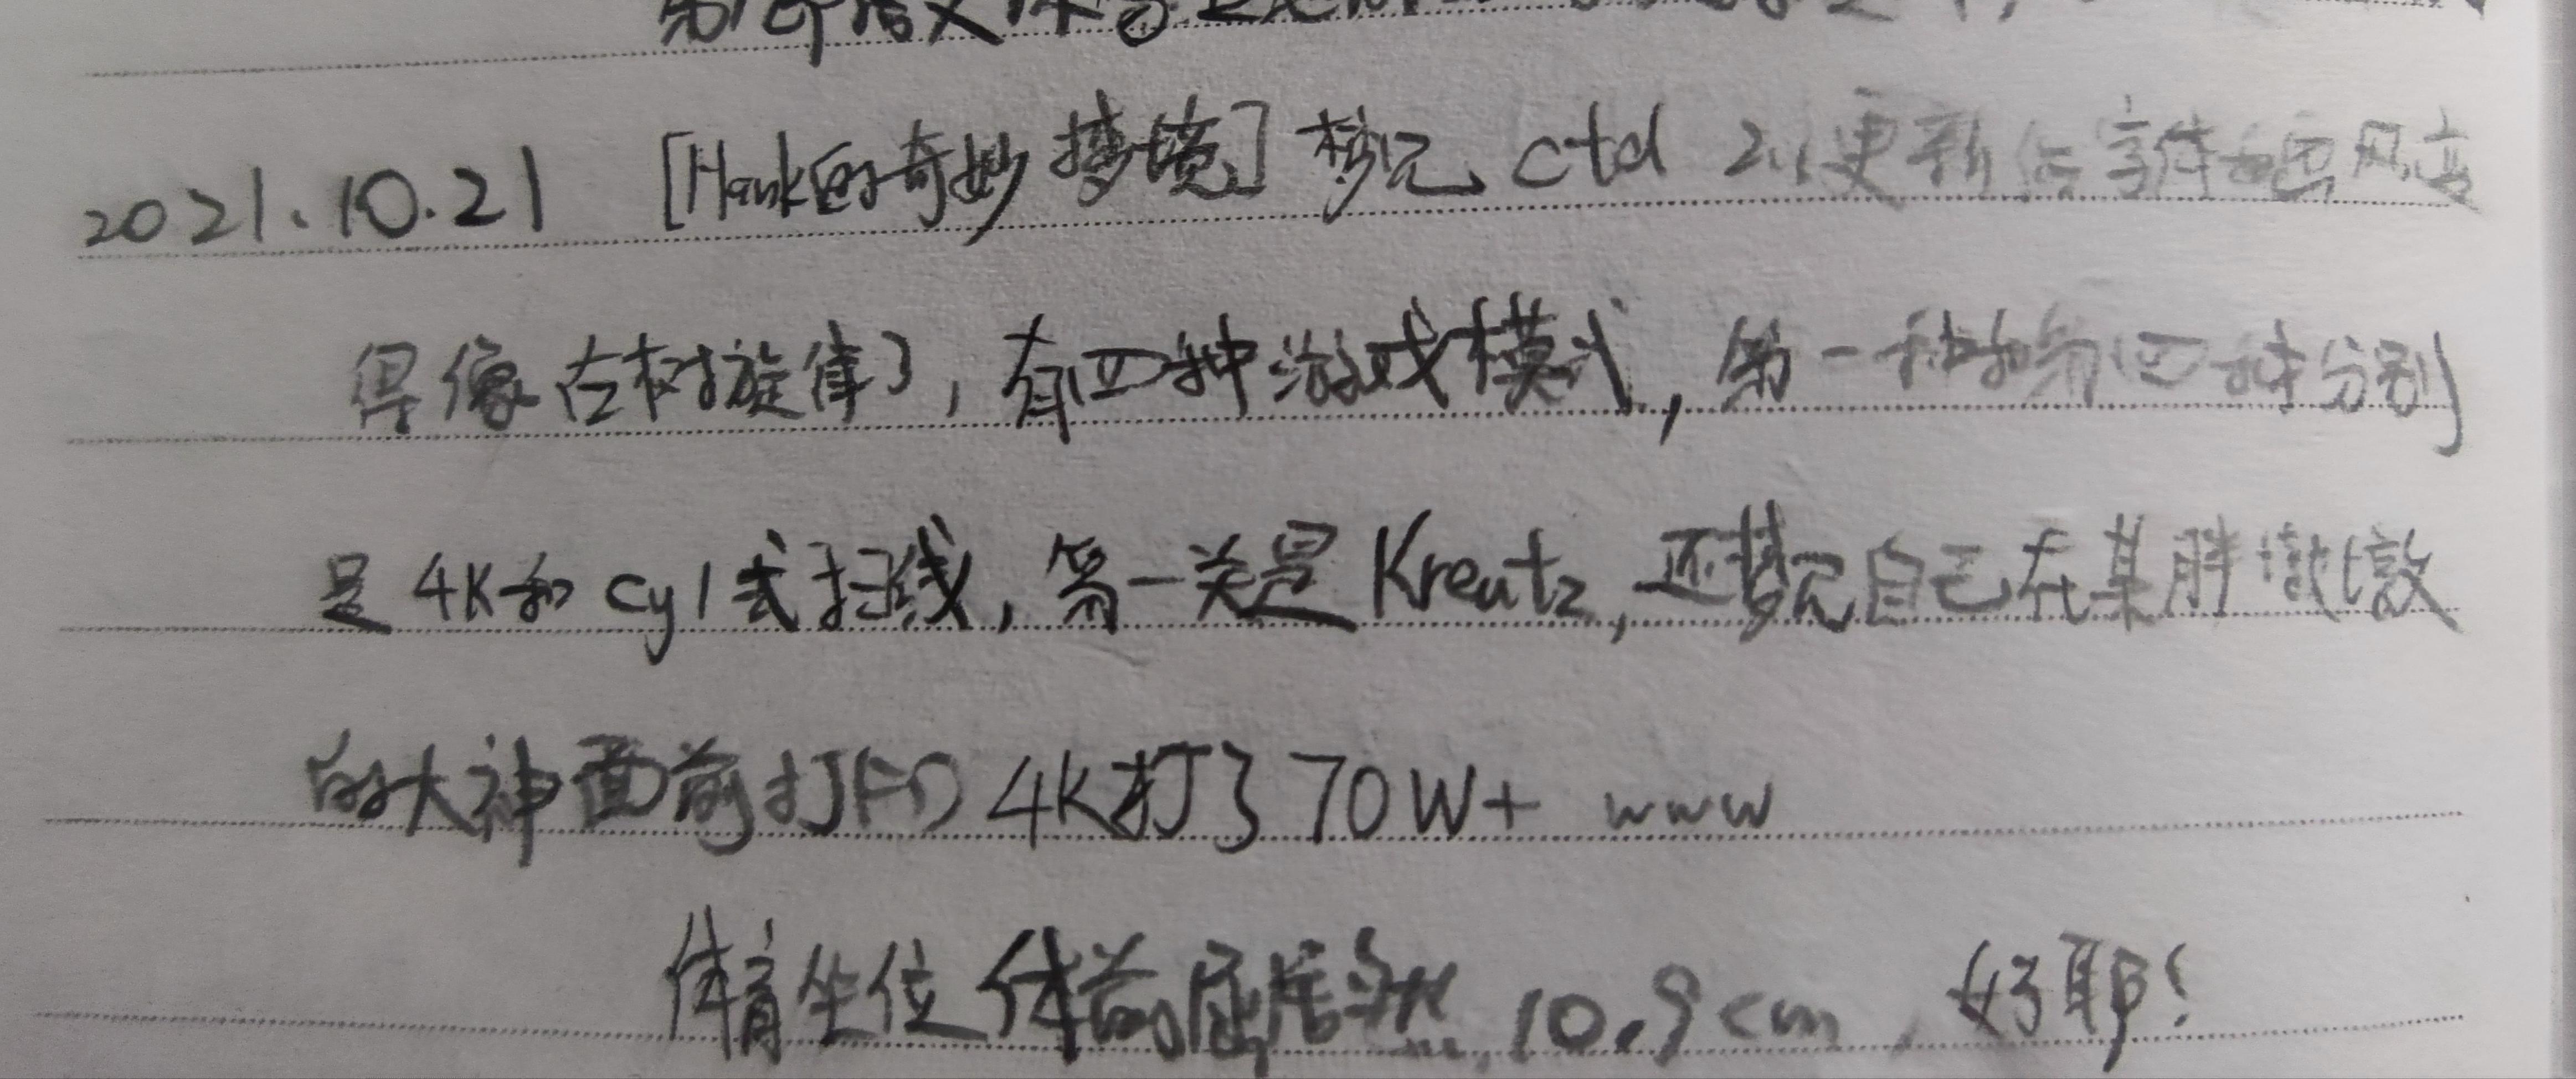 2021.10.21 [Hank的奇妙梦境] 梦见 ctd 2.1更新后字体和画风变
得像古树旋律了，有四种游戏模式，第一种和第四种分别
是 4K和 cy1式扫线，第一关是 Kreutz，还梦见自己在某胖墩墩
的大神面前打FD 4K打了70W+ www
体育坐位体前屈居然 10.9cm，好耶！